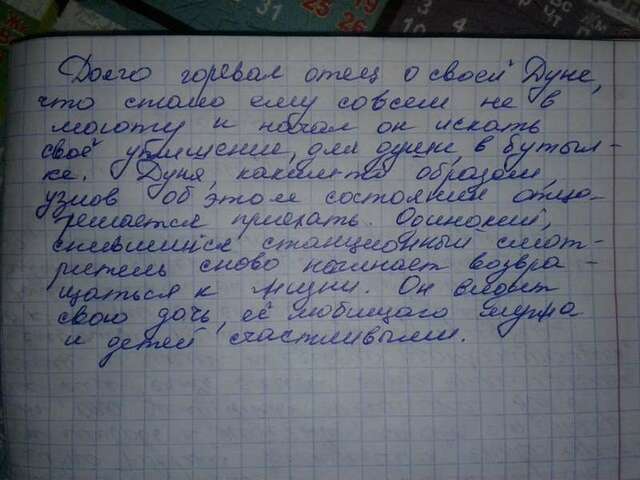 31
25
26
19
3
4
10
Вс
Чт
Долго горевал отец о своей Дуне,
что стало ему совсем не в
моготу и начал он искать
своё утишение, для души в бутыл-
ке. Дуня, каким то образом,
узнов об этом состоянии отца
решается приехать. Одинокий,
спившийся станционный смот-
ритель снова начинает возвра-
щаться к жизни. Он видит
свою дочь, её любящего мужа
и детей счастливыми.